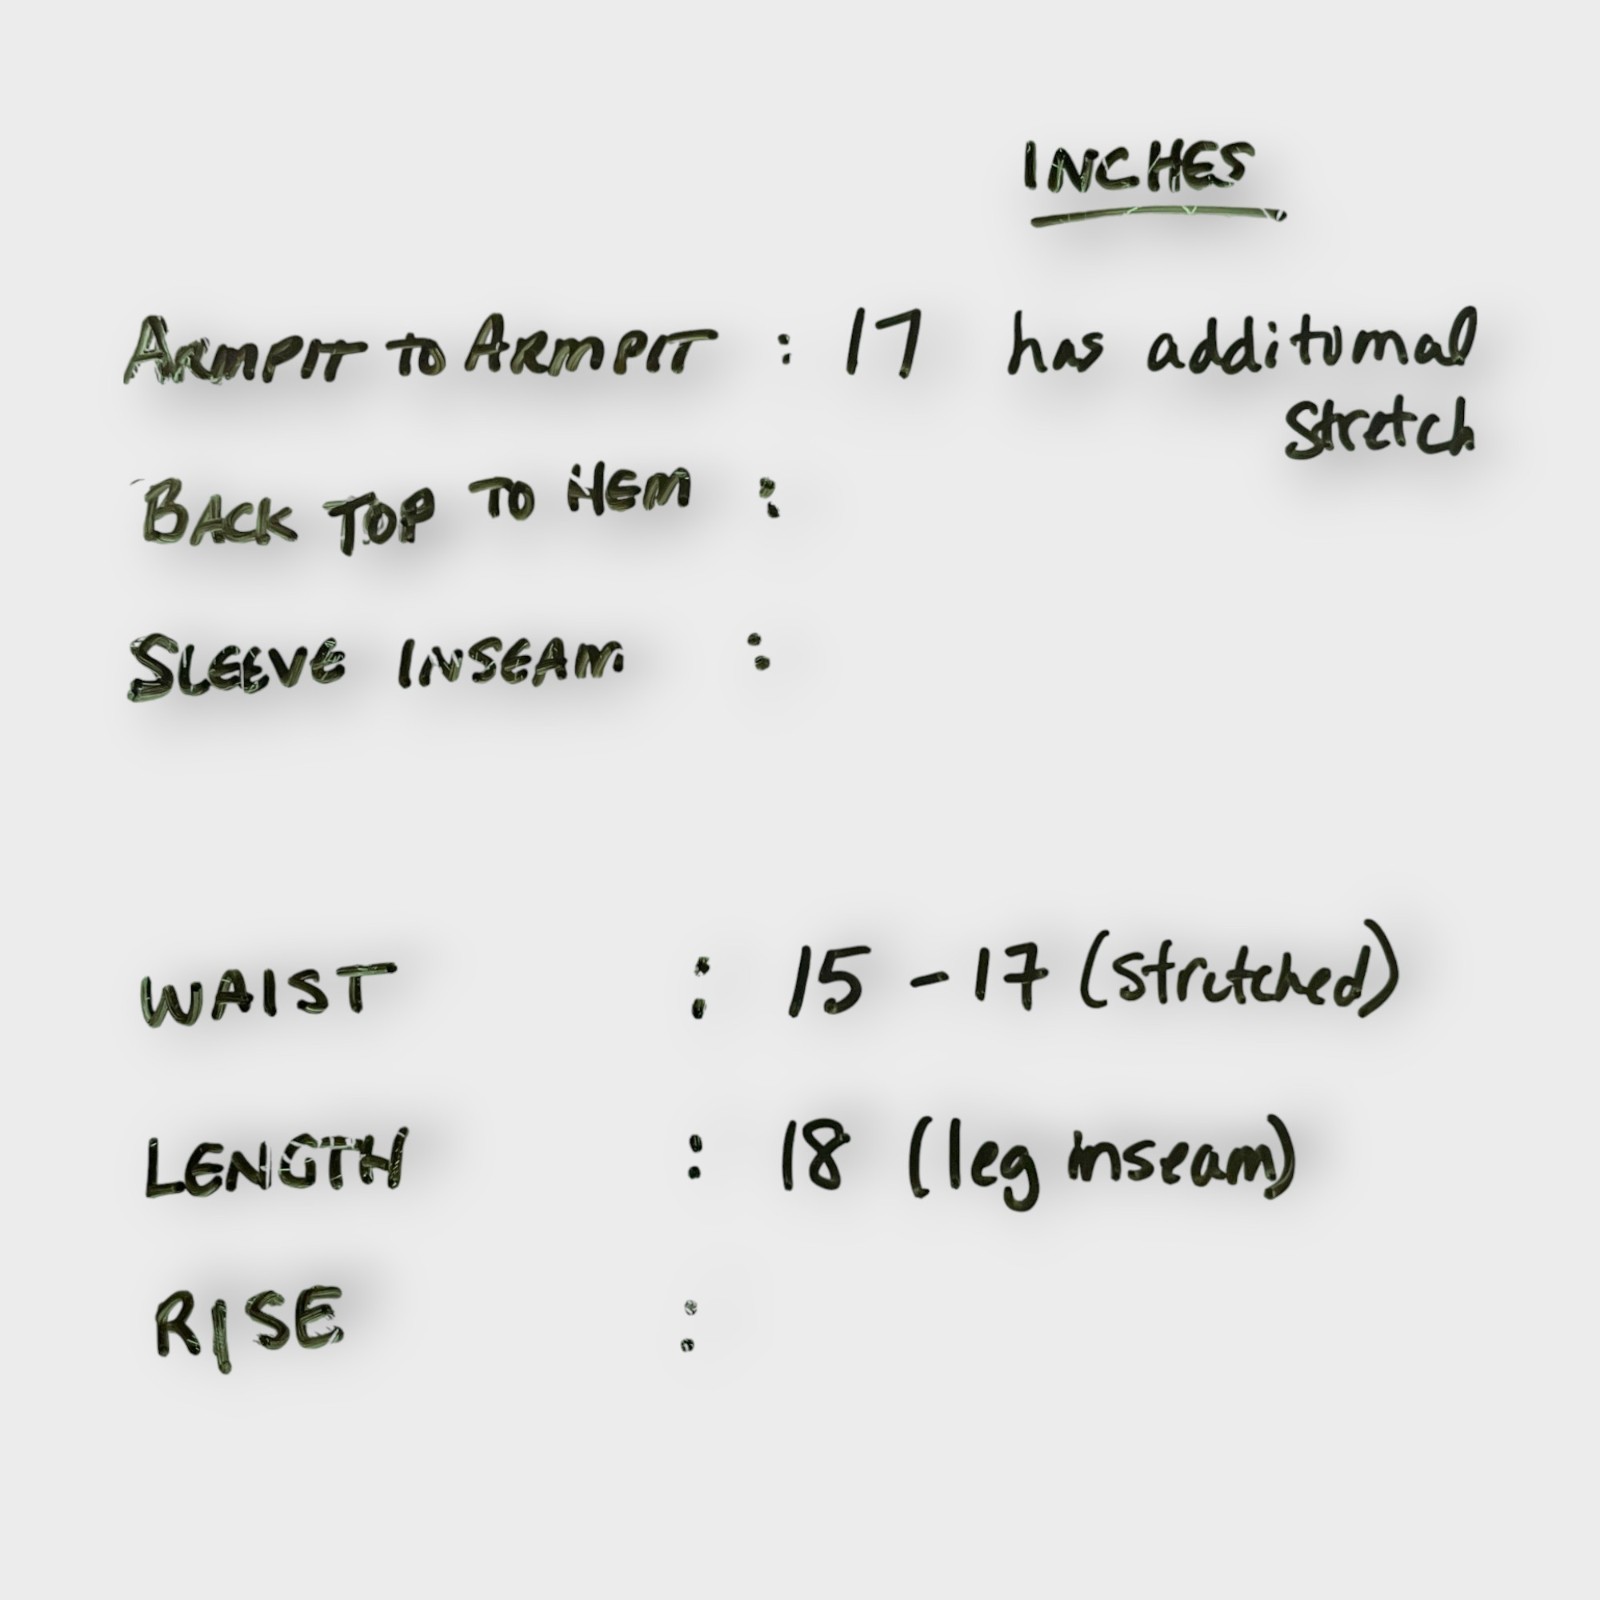 INCHES
ARMPIT to ARMPIT : 17 has additional
stretch
BACK TOP TO HEM :
SLEEVE INSEAM :
WAIST : 15 - 17 (stretched)
LENGTH : 18 (leg inseam)
RISE :